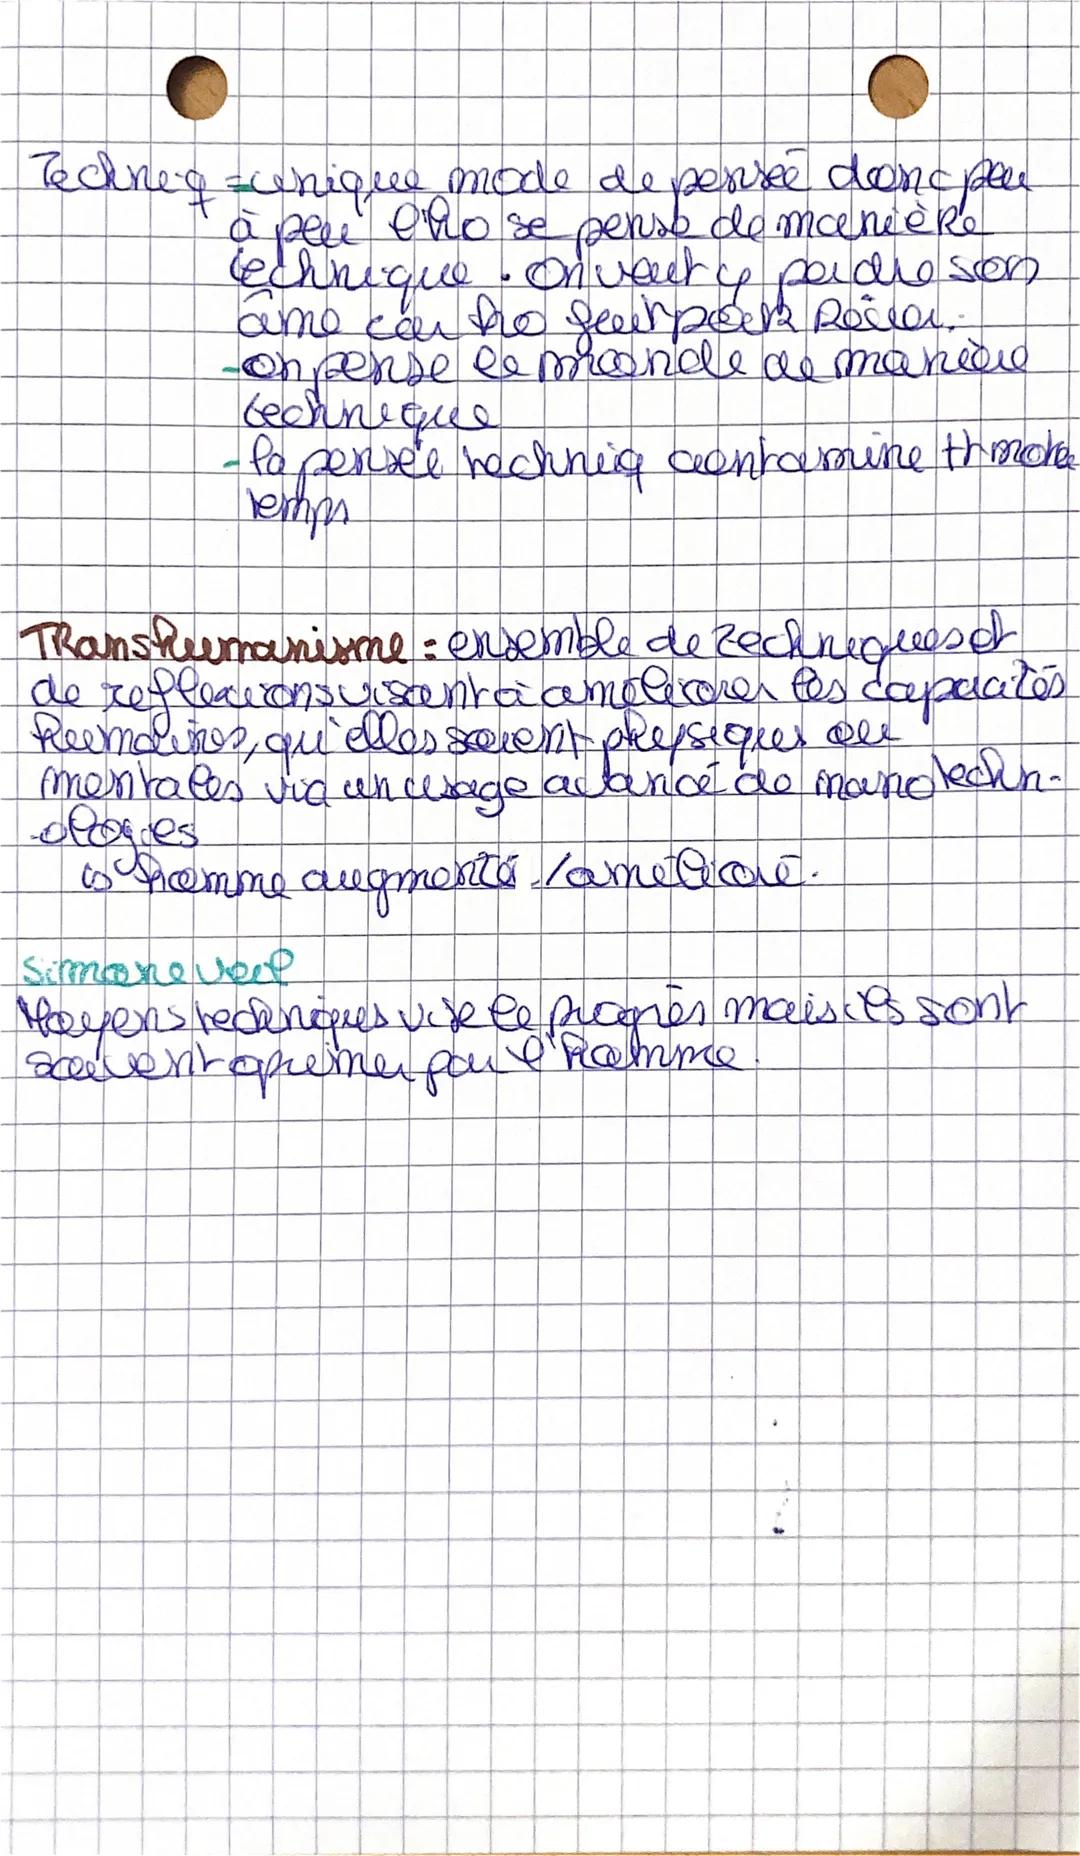 Techniq = unique mode de pensée donc peu
à peu l'ho se pense de manière
technique. On veut y perdre son
âme car ho
- on pense le monde de manière
technique
- la pensée techniq contamine tt notre
temps
Transhumanisme = ensemble de techniques et
de reflexions visant à améliorer les capacités
humaines, qu'elles soient physiques ou
mentales via un usage avancé de nanotechn-
-ologies
↳ homme augmenté / amélioré.
Simone Veil
Moyens techniques vise le progrès mais ils sont
souvent opprimer par l'homme.